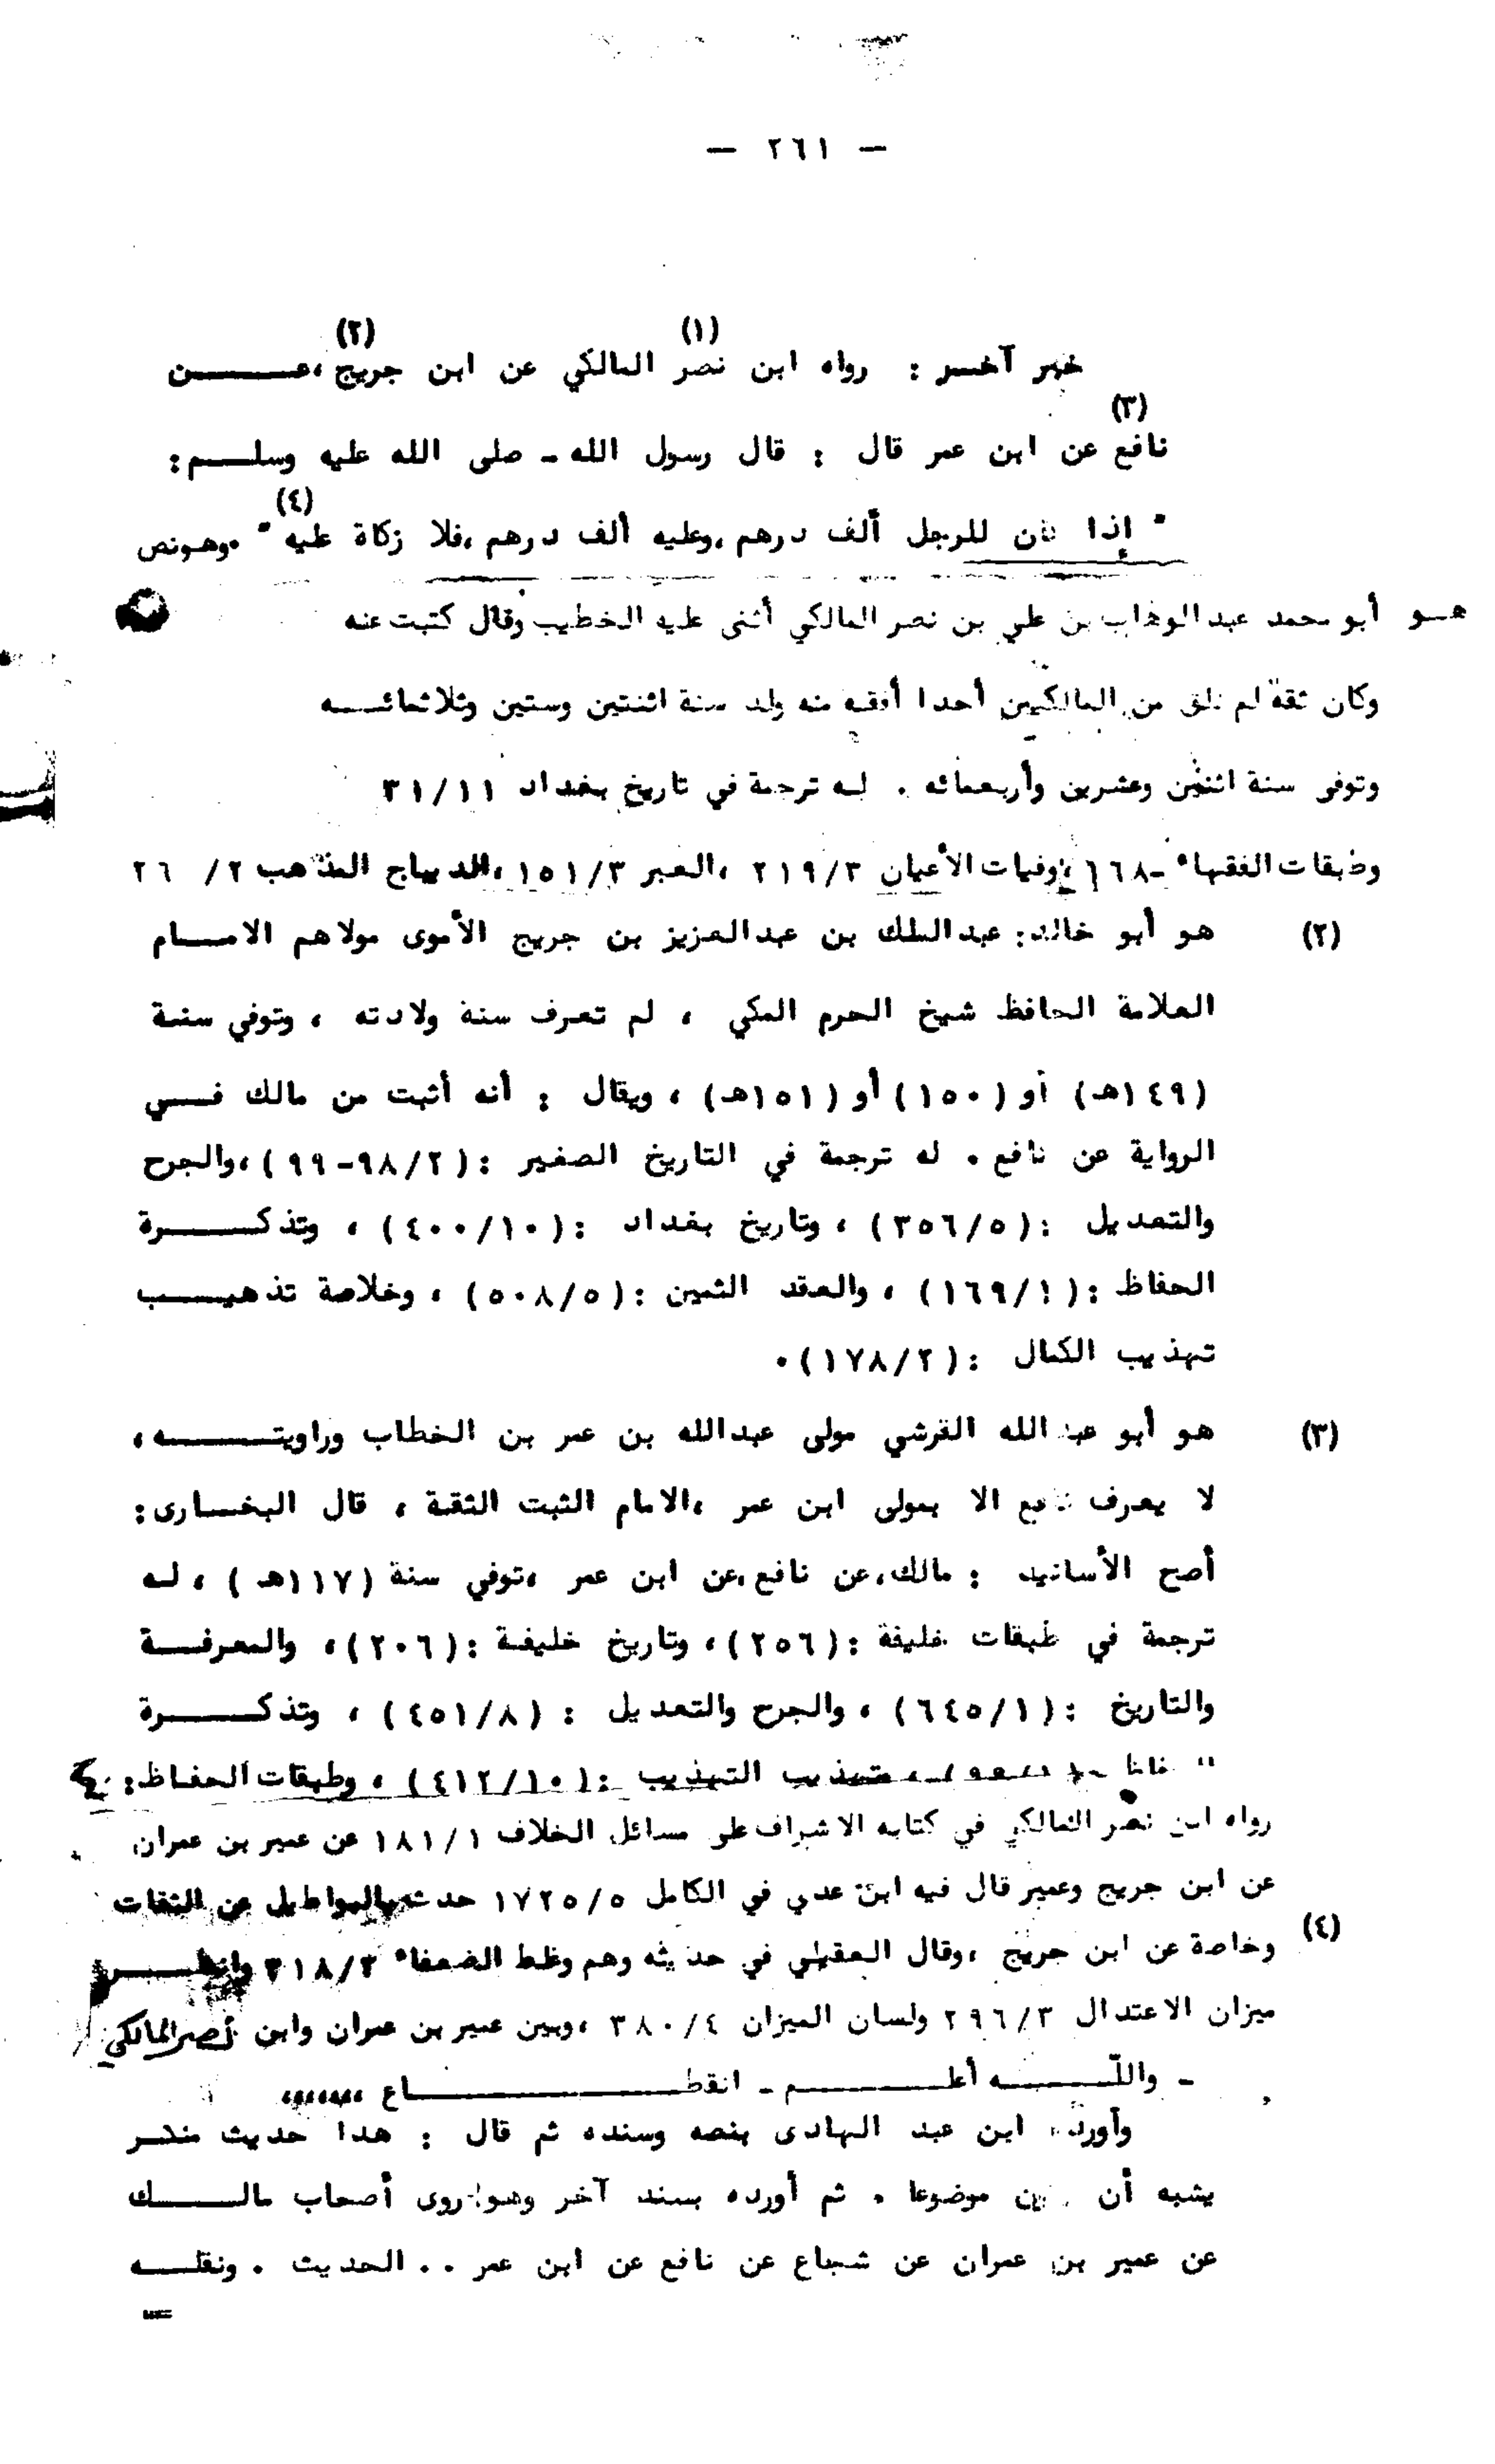 — ٢٦١ —
(١) (٢)
خبر آخر : رواه ابن نصر المالكي عن ابن جريج ،عن
(٣)
نافع عن ابن عمر قال : قال رسول الله ـ صلى الله عليه وسلم :
(٤)
" إذا كان للرجل ألف درهم ،وعليه ألف درهم ،فلا زكاة عليه " .وهونص
هو أبو محمد عبد الوهاب بن علي بن نصر المالكي أثنى عليه الخطيب وقال كتبت عنه
وكان ثقة لم نلق من المالكيين أحدا أفقه منه ولد سنة اثنتين وستين وثلاثمائه
وتوفى سنة اثنتين وعشرين وأربعمائه . له ترجمة في تاريخ بغداد ٣١/١١
وطبقات الفقهاء ـ١٦٨ ،وفيات الأعيان ٢١٩/٣ ،العبر ١٥١/٣ ،الديباج المذهب ٢/ ٢٦
(٢) هو أبو خالد: عبد الملك بن عبد العزيز بن جريج الأموى مولاهم الامام
العلامة الحافظ شيخ الحرم المكي ، لم تعرف سنة ولادته ، وتوفي سنة
(١٤٩هـ) أو (١٥٠) أو (١٥١هـ) ، ويقال : أنه أثبت من مالك في
الرواية عن نافع . له ترجمة في التاريخ الصغير : (٩٨/٢-٩٩) ،والجرح
والتعديل : (٣٥٦/٥) ، وتاريخ بغداد : (٤٠٠/١٠) ، وتذكرة
الحفاظ : (١٦٩/١) ، والعقد الثمين : (٥٠٨/٥) ، وخلاصة تذهيب
تهذيب الكمال : (١٧٨/٢).
(٣) هو أبو عبد الله القرشي مولى عبدالله بن عمر بن الخطاب وراويته ،
لا يعرف نافع الا بمولى ابن عمر ،الامام الثبت الثقة ، قال البخارى :
أصح الأسانيد : مالك،عن نافع،عن ابن عمر ،توفي سنة (١١٧هـ) ، له
ترجمة في طبقات خليفة : (٢٥٦) ، وتاريخ خليفة : (٢٠٦) ، والمعرفة
والتاريخ : (٦٤٥/١) ، والجرح والتعديل : (٤٥١/٨) ، وتذكرة
تهذيب التهذيب : (٤١٢/١٠) ، وطبقات الحفاظ :
رواه ابن نصر المالكي في كتابه الاشراف على مسائل الخلاف ١٨١/١ عن عمير بن عمران
عن ابن جريج وعمير قال فيه ابن عدي في الكامل ١٧٢٥/٥ حدث بالبواطيل عن الثقات
(٤) وخاصة عن ابن جريج ،وقال العقيلي في حديثه وهم وغلط الضعفاء ٣١٨/٣ وانظر
ميزان الاعتدال ٢٩٦/٣ ولسان الميزان ٣٨٠/٤ ،وبين عمير بن عمران وابن نصر المالكي
ـ والله أعلم ـ انقطاع ،،،،،،،
وأورده ابن عبد الهادى بنصه وسنده ثم قال : هذا حديث منكر
يشبه أن يكون موضوعا . ثم أورده بسند آخر وهو: روى أصحاب مالك
عن عمير بن عمران عن شجاع عن نافع عن ابن عمر .. الحديث . ونقله
=